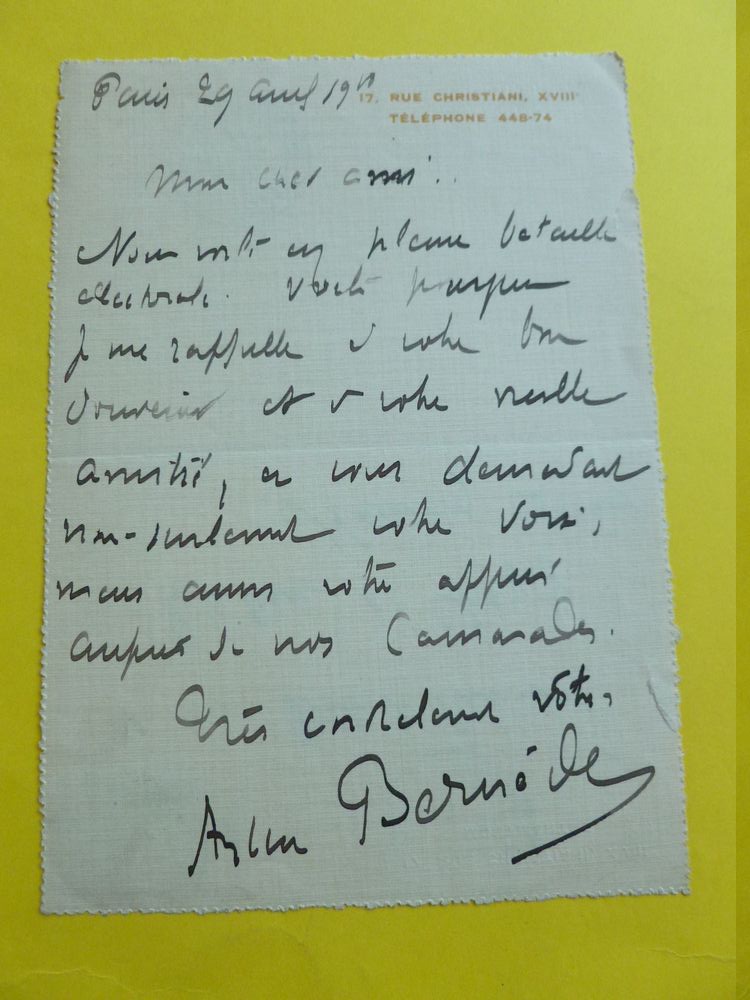 Paris 29 avril 19
17, RUE CHRISTIANI, XVIIIᵉ
TÉLÉPHONE 448-74
Mon cher ami..
Nous voilà en pleine bataille
électorale. Voilà pourquoi
je me rappelle à votre bon
souvenir et à votre vieille
amitié, en vous demandant
non-seulement votre voix,
mais aussi votre appui
auprès de nos Camarades.
Très cordialement vôtre,
Arthur Bernède